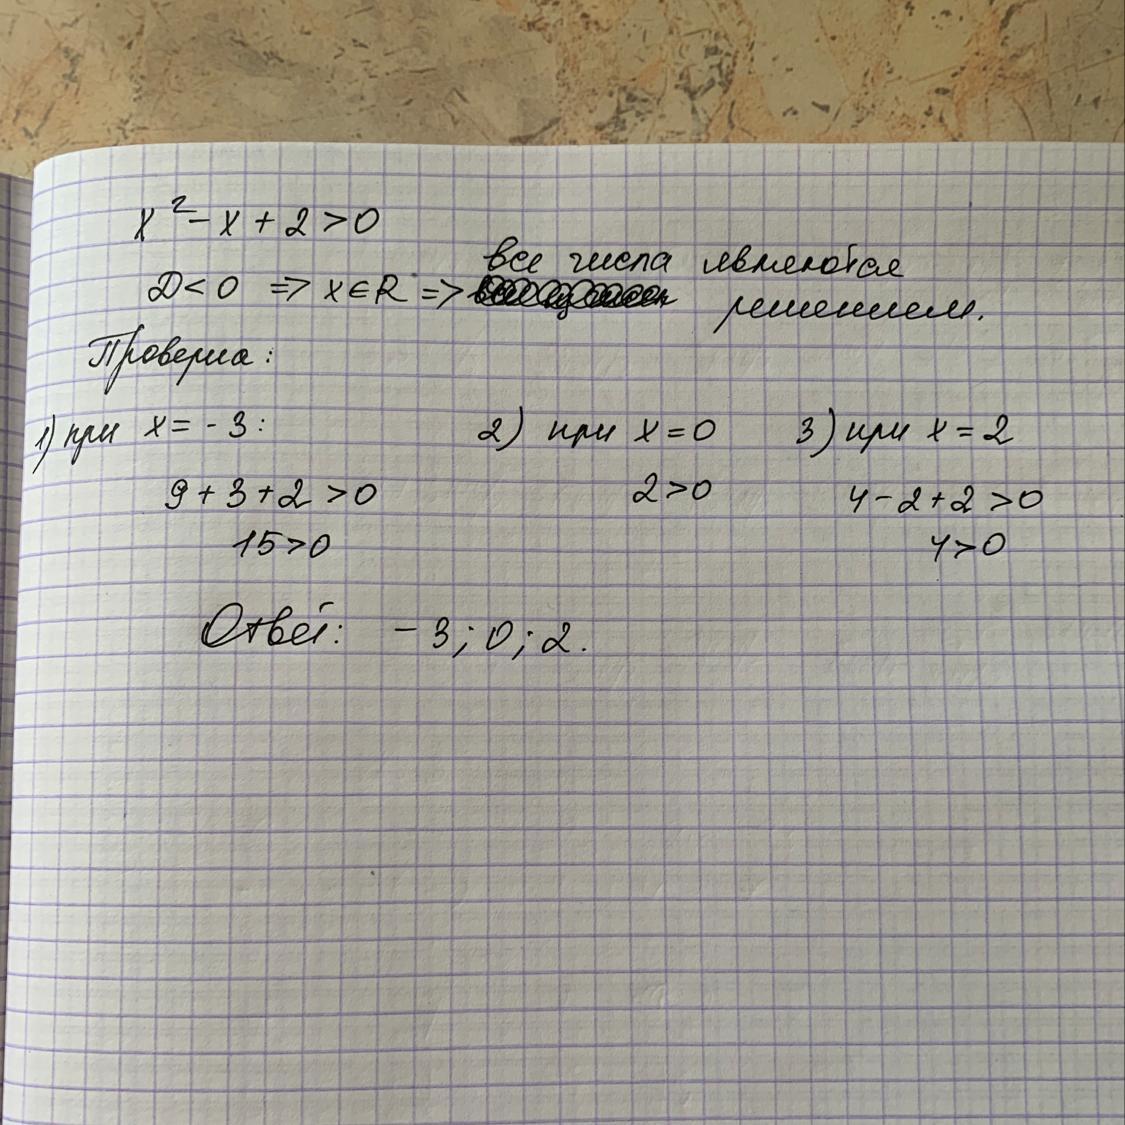 x² - x + 2 > 0
D < 0 => x ∈ R => все числа являются
решением.
Проверка:
1) при x = -3:
9 + 3 + 2 > 0
15 > 0
2) при x = 0
2 > 0
3) при x = 2
4 - 2 + 2 > 0
4 > 0
Ответ: -3; 0; 2.